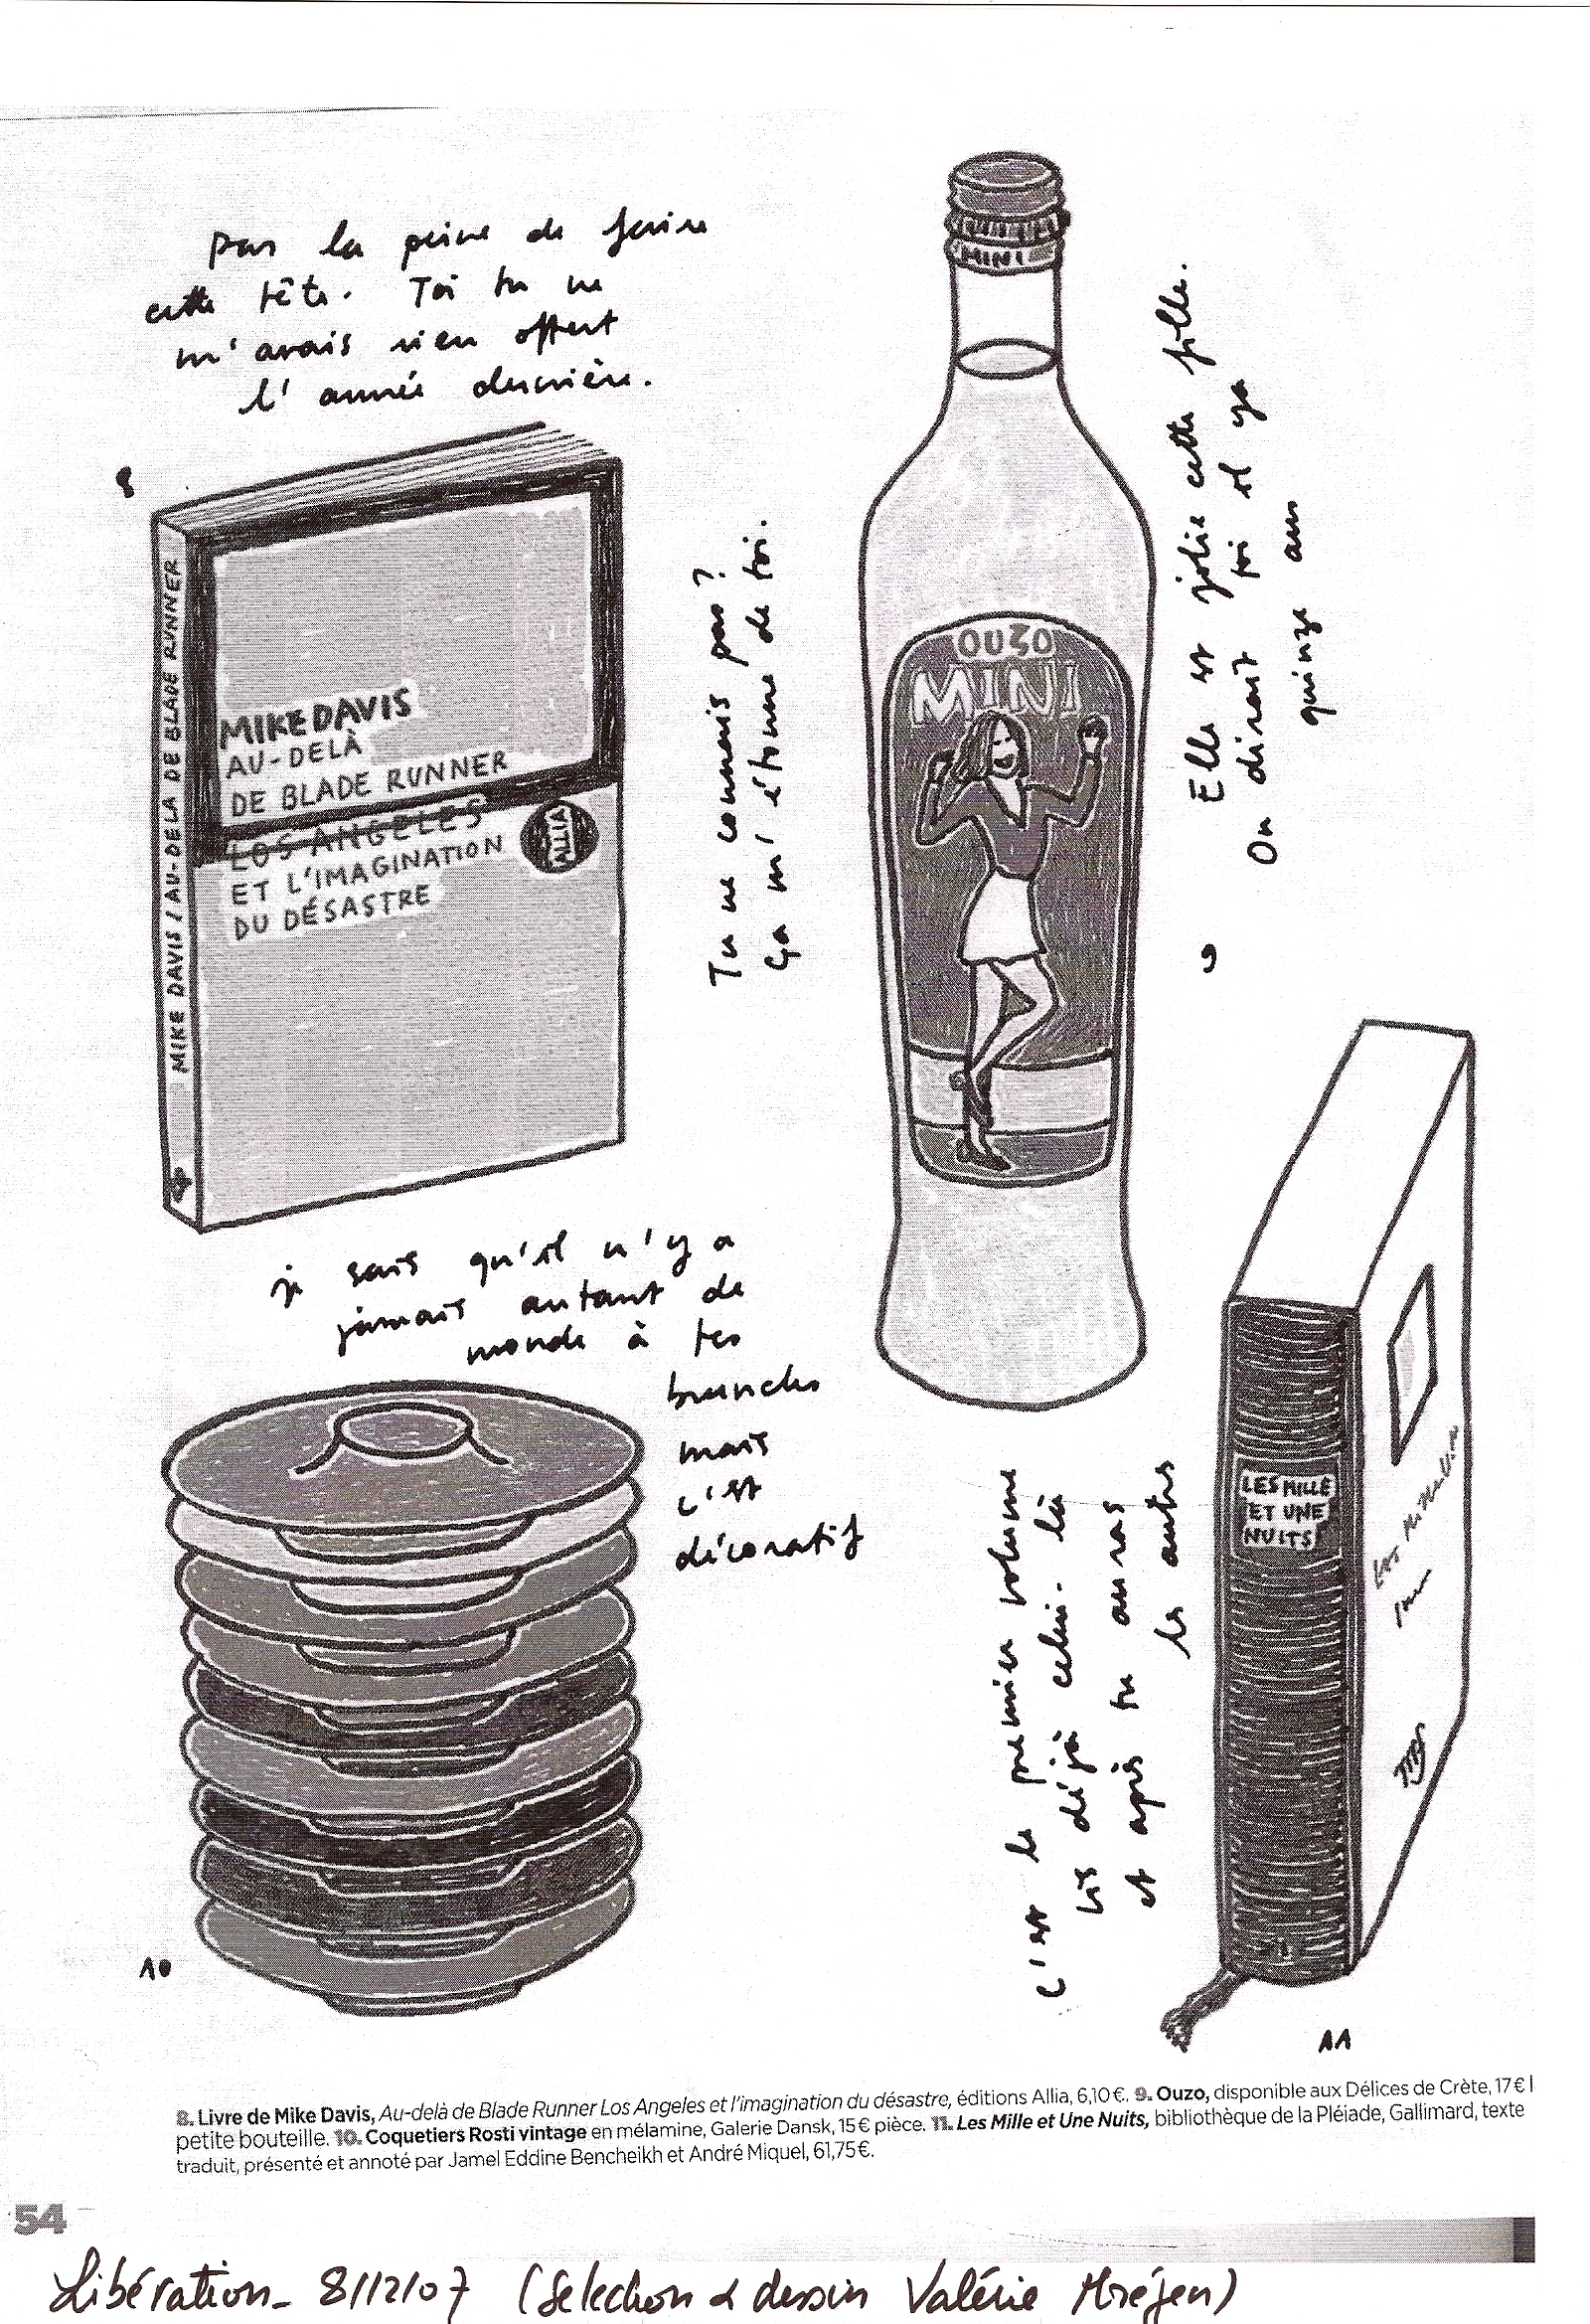 pas la peine de faire
cette tête. Toi tu ne
m'avais rien offert
l'année dernière.
8
MIKE DAVIS / AU-DELA DE BLADE RUNNER
MIKE DAVIS
AU-DELÀ
DE BLADE RUNNER
LOS ANGELES
ET L'IMAGINATION
DU DÉSASTRE
ALLIA
Tu ne connais pas?
Ça m'étonne de toi.
MINI
OUZO
MINI
Elle est jolie cette fille.
On dirait toi il y a
quinze ans
9
je sais qu'il n'y a
jamais autant de
monde à tes
brunchs
mais
c'est
décoratif
10
C'est le premier volume
Lis déjà celui-là
et après tu auras
les autres
LES MILLE
ET UNE
NUITS
11
8. Livre de Mike Davis, Au-delà de Blade Runner Los Angeles et l'imagination du désastre, éditions Allia, 6,10€. 9. Ouzo, disponible aux Délices de Crète, 17€ l
petite bouteille. 10. Coquetiers Rosti vintage en mélamine, Galerie Dansk, 15€ pièce. 11. Les Mille et Une Nuits, bibliothèque de la Pléiade, Gallimard, texte
traduit, présenté et annoté par Jamel Eddine Bencheikh et André Miquel, 61,75€.
54
Libération - 8/12/07 (Selection & dessin Valérie Mréjen)